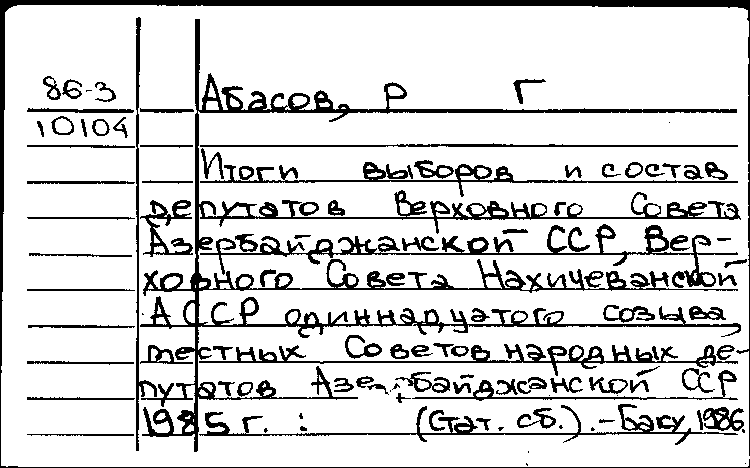 86-3 Абасов, Р Г
10104
Итоги выборов и состав
депутатов Верховного Совета
Азербайджанской ССР, Вер-
ховного Совета Нахичеванской
АССР одиннадцатого созыва,
местных Советов народных де-
путатов Азербайджанской ССР
1985 г. : (Стат. сб.). - Баку, 1986.